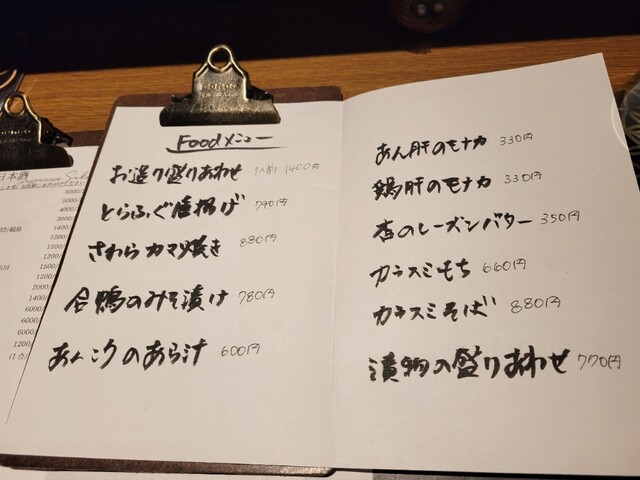 Foodメニュー
お造り盛りあわせ 1人前 1400円
とらふぐ唐揚げ 790円
さわらカマ焼き 880円
合鴨のみそ漬け 780円
あんこうのあら汁 600円
あん肝のモナカ 330円
鶏肝のモナカ 330円
杏のレーズンバター 350円
カラスミもち 660円
カラスミそば 880円
漬物の盛りあわせ 770円
日本酒
5000/
5000/
4000/
3000/
1200/
1500/
1200/
1500/
1200/
2000/
1400/
6000/
6000/
1200/